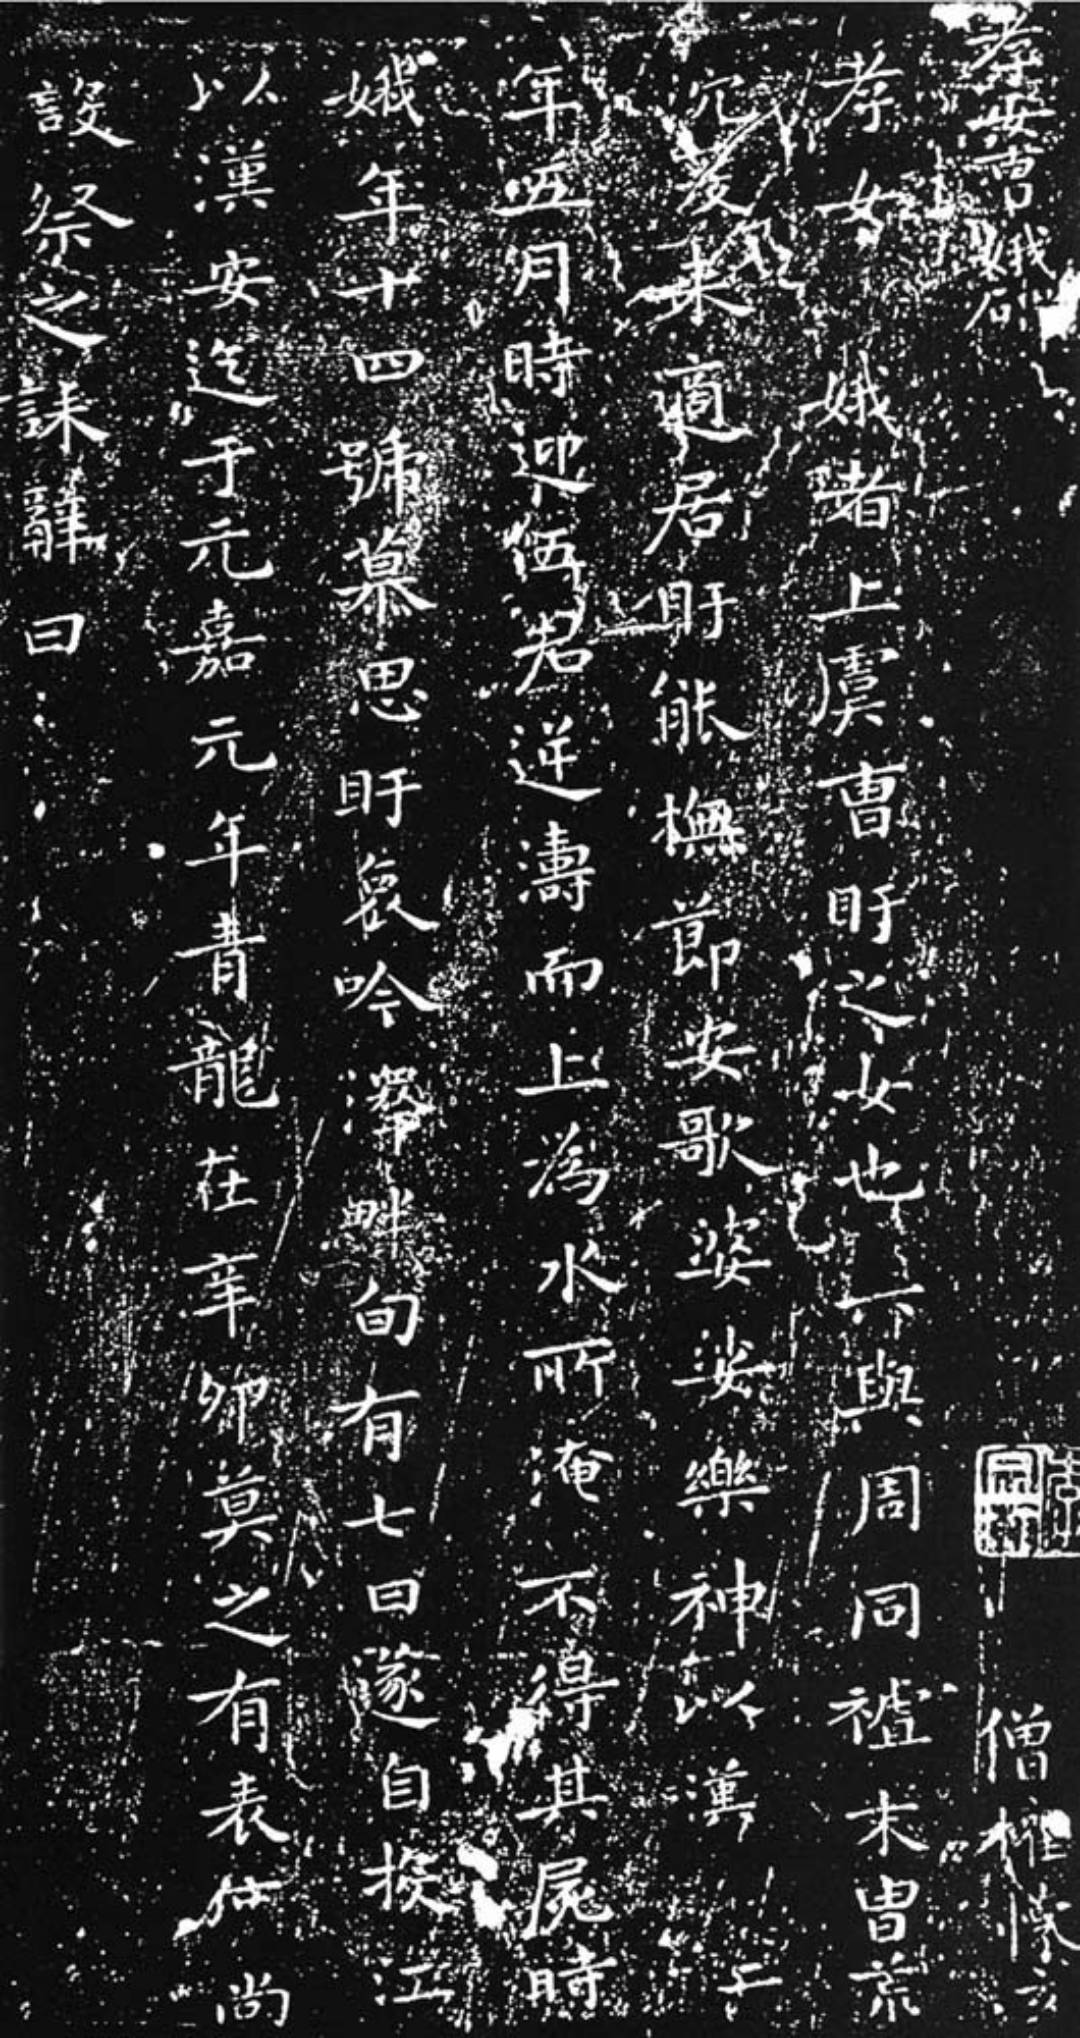 孝女曹娥碑
僧權 懷充
孝女娥者上虞曹盱之女也其與周同禮末胄荒
沉爰来適居盱能撫節安歌婆娑樂神以漢二
年五月時迎伍君逆濤而上為水所淹不得其屍時
娥年十四號慕思盱哀吟澤畔旬有七日遂自投江
以漢安迄于元嘉元年青龍在辛卯莫之有表
設祭之誄辭曰